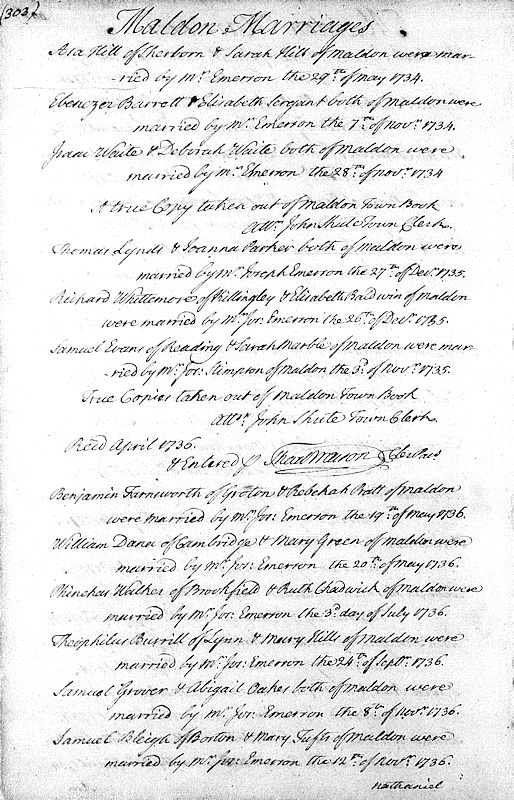 (303)
Maldon Marriages
Asa Hill of Sherborn & Sarah Hill of maldon were mar-
ried by Mr. Emerson the 29th of may 1734.
Ebenezer Barrett & Elisabeth Sergant both of maldon were
married by Mr. Emerson the 7th of novr. 1734.
Isaac Waite & Deborah White both of maldon were
married by Mr. Emerson the 28th of novr. 1734
A true Copy taken out of maldon Town Book
attr. John Shute Town Clerk
Thomas Lynds & Joanna Parker both of Maldon were
married by Mr. Joseph Emerson the 27th of Decr. 1735.
Richard Whittemore of Killingley & Elisabeth Baldwin of maldon
were married by Mr. Jos: Emerson the 26th of Decr. 1735.
Samuel Evans of Reading & Sarah Marble of Maldon were mar-
ried by Mr. Jos: Stimpton of maldon the 3d. of Novr. 1735.
True Copies taken out of Maldon Town Book
attr. John Shute Town Clerk
Recd April 1736.
& Entered
Benjamin Farnworth of Groton & Rebekah Pratt of maldon
were married by Mr. Jos: Emerson the 19th of may 1736.
William Dann of Cambridge & Mary Green of maldon were
married by Mr. Jos: Emerson the 20th of may 1736.
Phinehas Walker of Brookfield & Ruth Chadwick of maldon were
married by Mr. Jos: Emerson the 3d. day of July 1736.
Theophilus Burrill of Lynn & Mary Hills of maldon were
married by Mr. Jos: Emerson the 24th of Septr. 1736.
Samuel Grover & Abigail Oakes both of maldon were
married by Mr. Jos: Emerson the 8th of Novr. 1736.
Samuel Bleigh of Boston & Mary Tufts of maldon were
married by Mr. Jos: Emerson the 12th of novr. 1736.
nathaniel